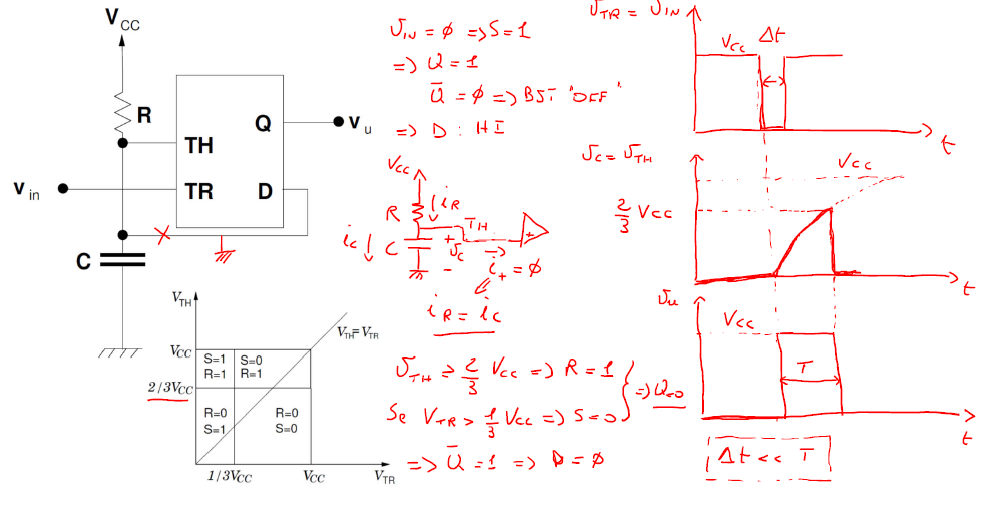 V_CC
R
TH
Q
v_u
TR
D
v_in
C
V_TH
V_TH=V_TR
V_CC
S=1
R=1
S=0
R=1
2/3V_CC
R=0
S=1
R=0
S=0
1/3V_CC
V_CC
V_TR
v_IN = ∅ => S=1
=> Q = 1
Q̄ = ∅ => BJT "OFF"
=> D : HI
V_CC
R
i_R
TH
i_C
C
+
v_C
-
+
i_+ = ∅
i_R = i_C
v_TH ≥ 2/3 V_CC => R = 1
Se V_TR > 1/3 V_CC => S=0
=> Q=0
=> Q̄ = 1 => D = ∅
v_TR = v_IN
V_CC
Δt
t
v_C = v_TH
V_CC
2/3 V_CC
t
v_u
V_CC
T
t
Δt << T